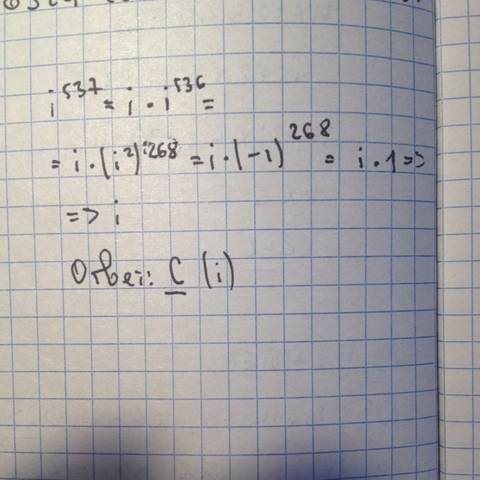 i^537 = i · i^536 =
= i · (i^2)^268 = i · (-1)^268 = i · 1 =>
=> i
Ответ: C (i)